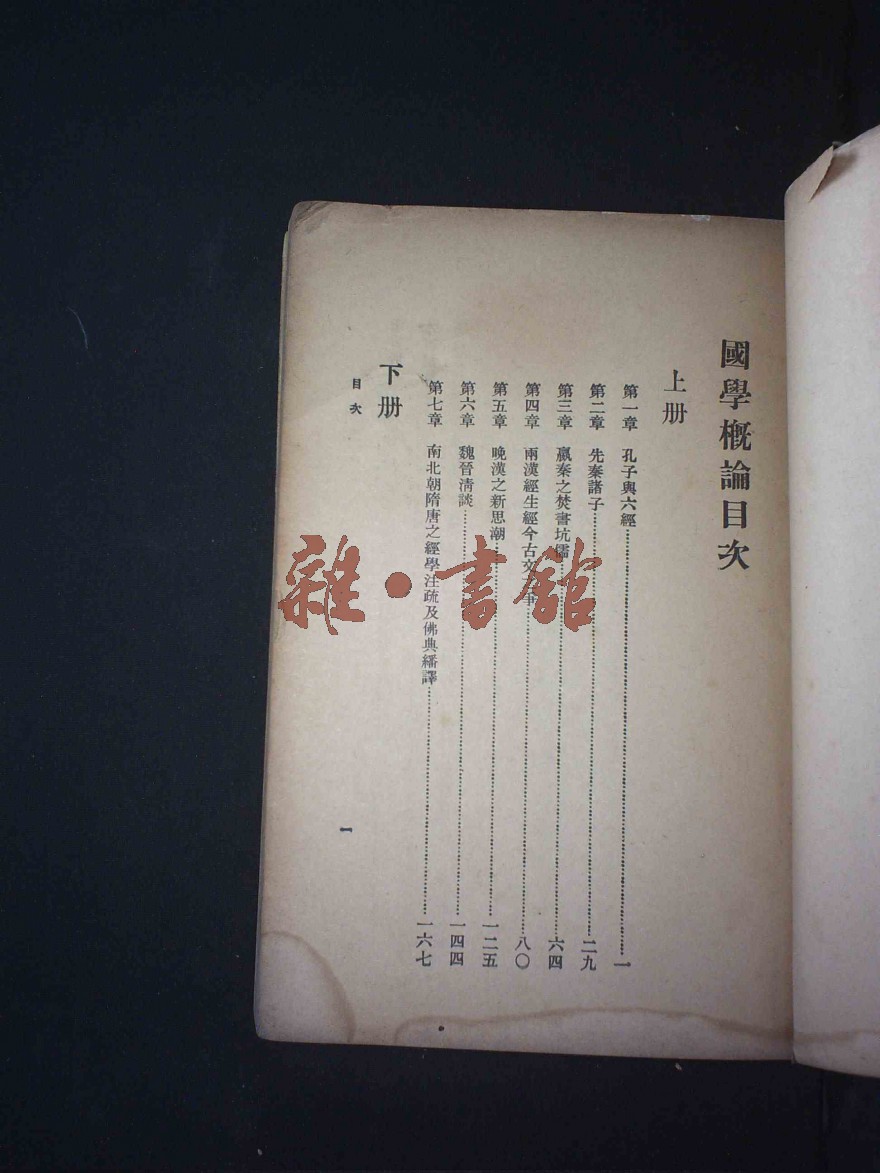 國學概論目次
上册
第一章 孔子與六經……一
第二章 先秦諸子……二九
第三章 嬴秦之焚書坑儒……六四
第四章 兩漢經生經今古文之爭……八〇
第五章 晚漢之新思潮……一二五
第六章 魏晉清談……一四四
第七章 南北朝隋唐之經學注疏及佛典繙譯……一六七
下册
目次
一
雜·書館